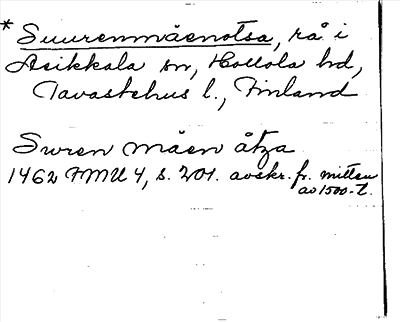 * Suurenmäenotsa, rå i
Asikkala sn, Hollola hd,
Tavastehus l., Finland
Swren mäen åtza
1462 FMU 4, s. 201. avskr. fr. mitten
av 1500-t.